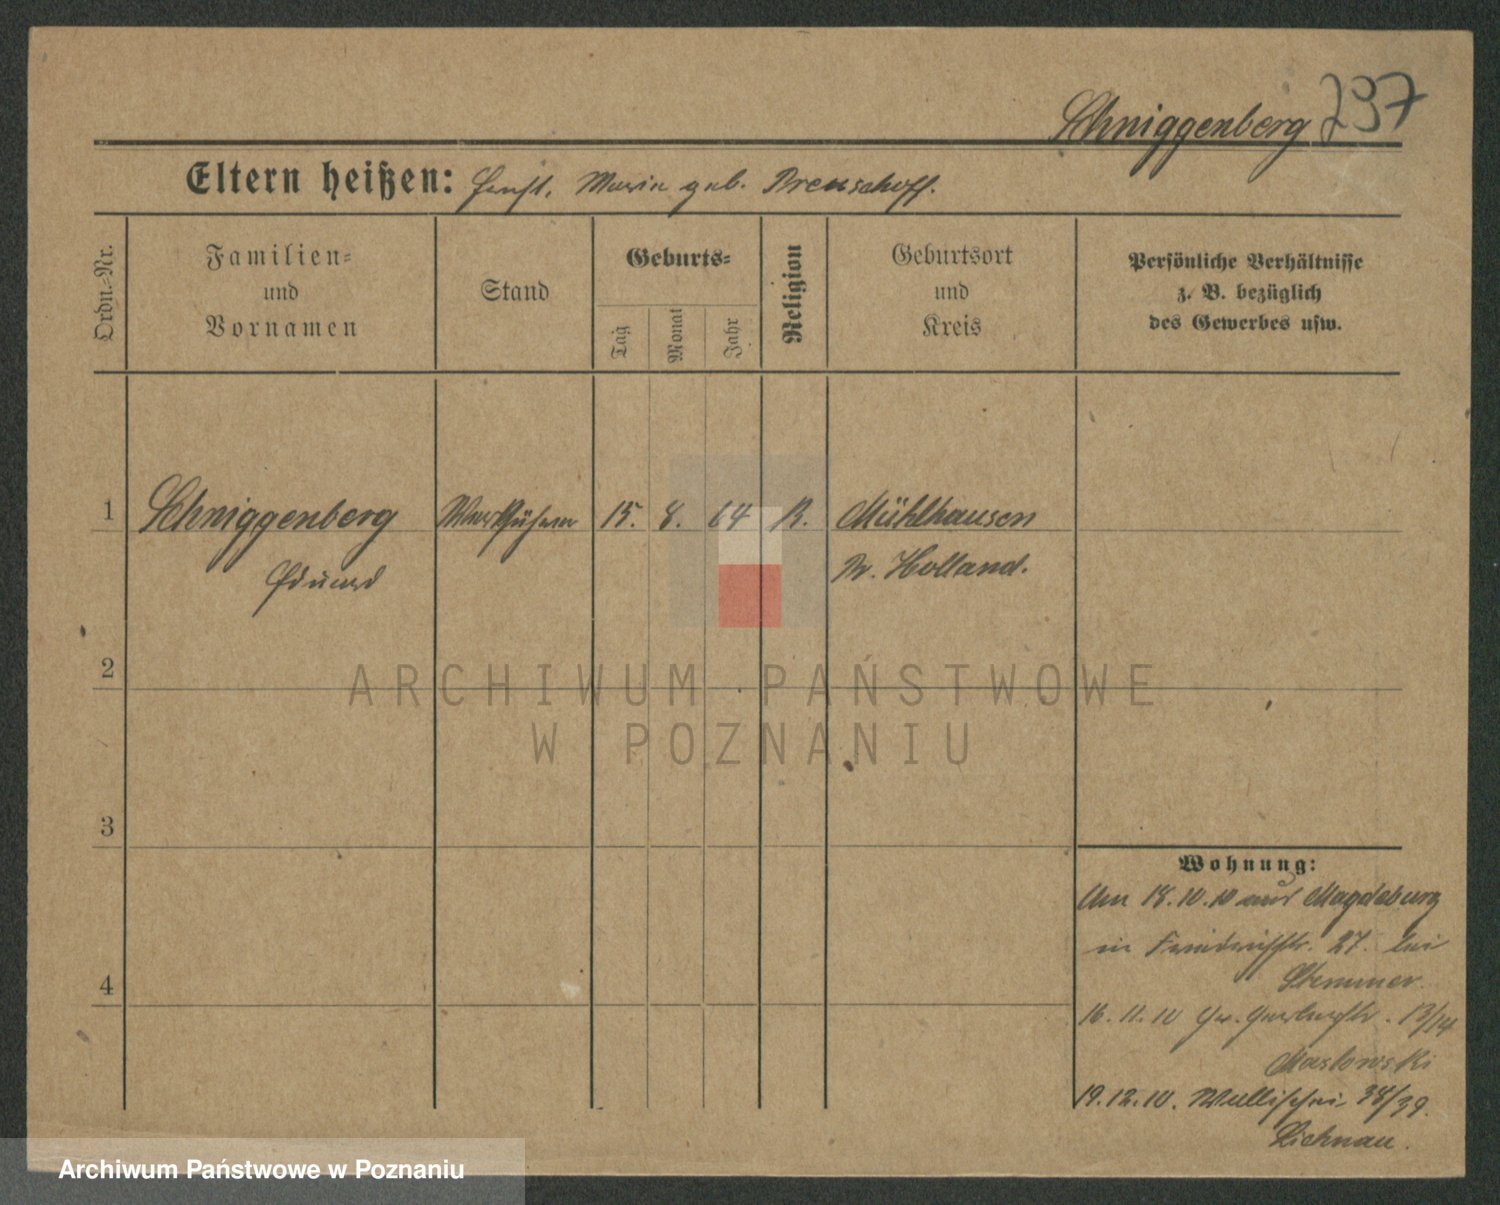 Schniggenberg 237
Eltern heißen: Ernst, Marie geb. Drenschoff.
Ordn.-Nr.
Familien-
und
Vornamen
Stand
Geburts-
Tag
Monat
Jahr
Religion
Geburtsort
und
Kreis
Persönliche Verhältnisse
z. B. bezüglich
des Gewerbes usw.
1 Schniggenberg Werkführer 15. 8. 64 Mühlhausen
Eduard Pr. Holland.
2
3
4
Wohnung:
Am 18.10.10 aus Magdeburg
in Friedrichstr. 27. bei
Stemmer.
16.11.10 Gr. Gerberstr. 13/14
Maslowski
19.12.10. Wallischei 38/39.
Lichnau.
ARCHIWUM PAŃSTWOWE
W POZNANIU
Archiwum Państwowe w Poznaniu